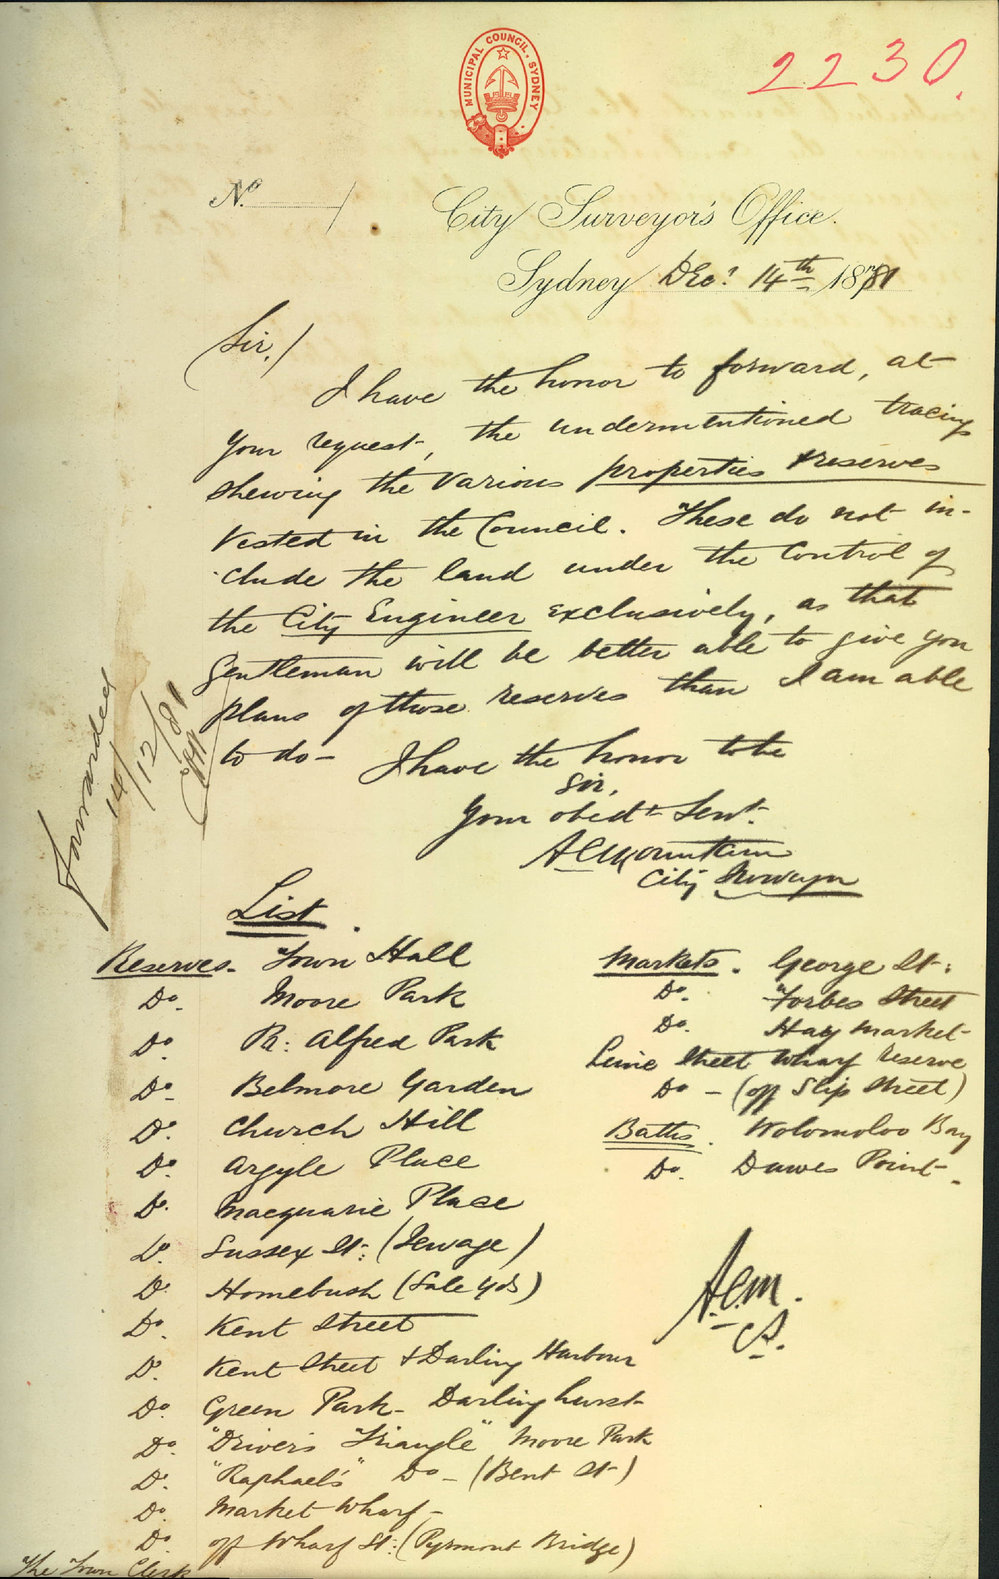 MUNICIPAL COUNCIL, SYDNEY
2230.
No.
City Surveyor's Office.
Sydney Decr 14th 1881
Sir,
I have the honor to forward, at
your request, the undermentioned tracings
shewing the various properties & reserves
vested in the Council. These do not in-
clude the land under the Control of
the City Engineer exclusively, as that
Gentleman will be better able to give you
plans of those reserves than I am able
to do—
I have the honor to be
Sir,
Your obedt Servt.
A C Mountain
City Surveyor
Forwarded
14/12/81
List.
Reserves. Town Hall
Do. Moore Park
Do. Pr: Alfred Park
Do. Belmore Garden
Do. Church Hill
Do. Argyle Place
Do. Macquarie Place
Do. Sussex St: (Sewage)
Do. Homebush (Sale Yds)
Do. Kent Street
Do. Kent Street & Darling Harbour
Do. Green Park - Darlinghurst
Do. "Driver's Triangle" Moore Park
Do. "Raphael's" Do - (Bent St)
Do. Market Wharf -
Do. off Wharf St: (Pyrmont Bridge)
Markets. George St:
Do. Forbes Street
Do. Hay Market
Lime Street Wharf reserve
Do - (off Slip Street)
Baths. Wolomoloo Bay
Do. Dawes Point.
A.C.M.
C.S.
The Town Clerk